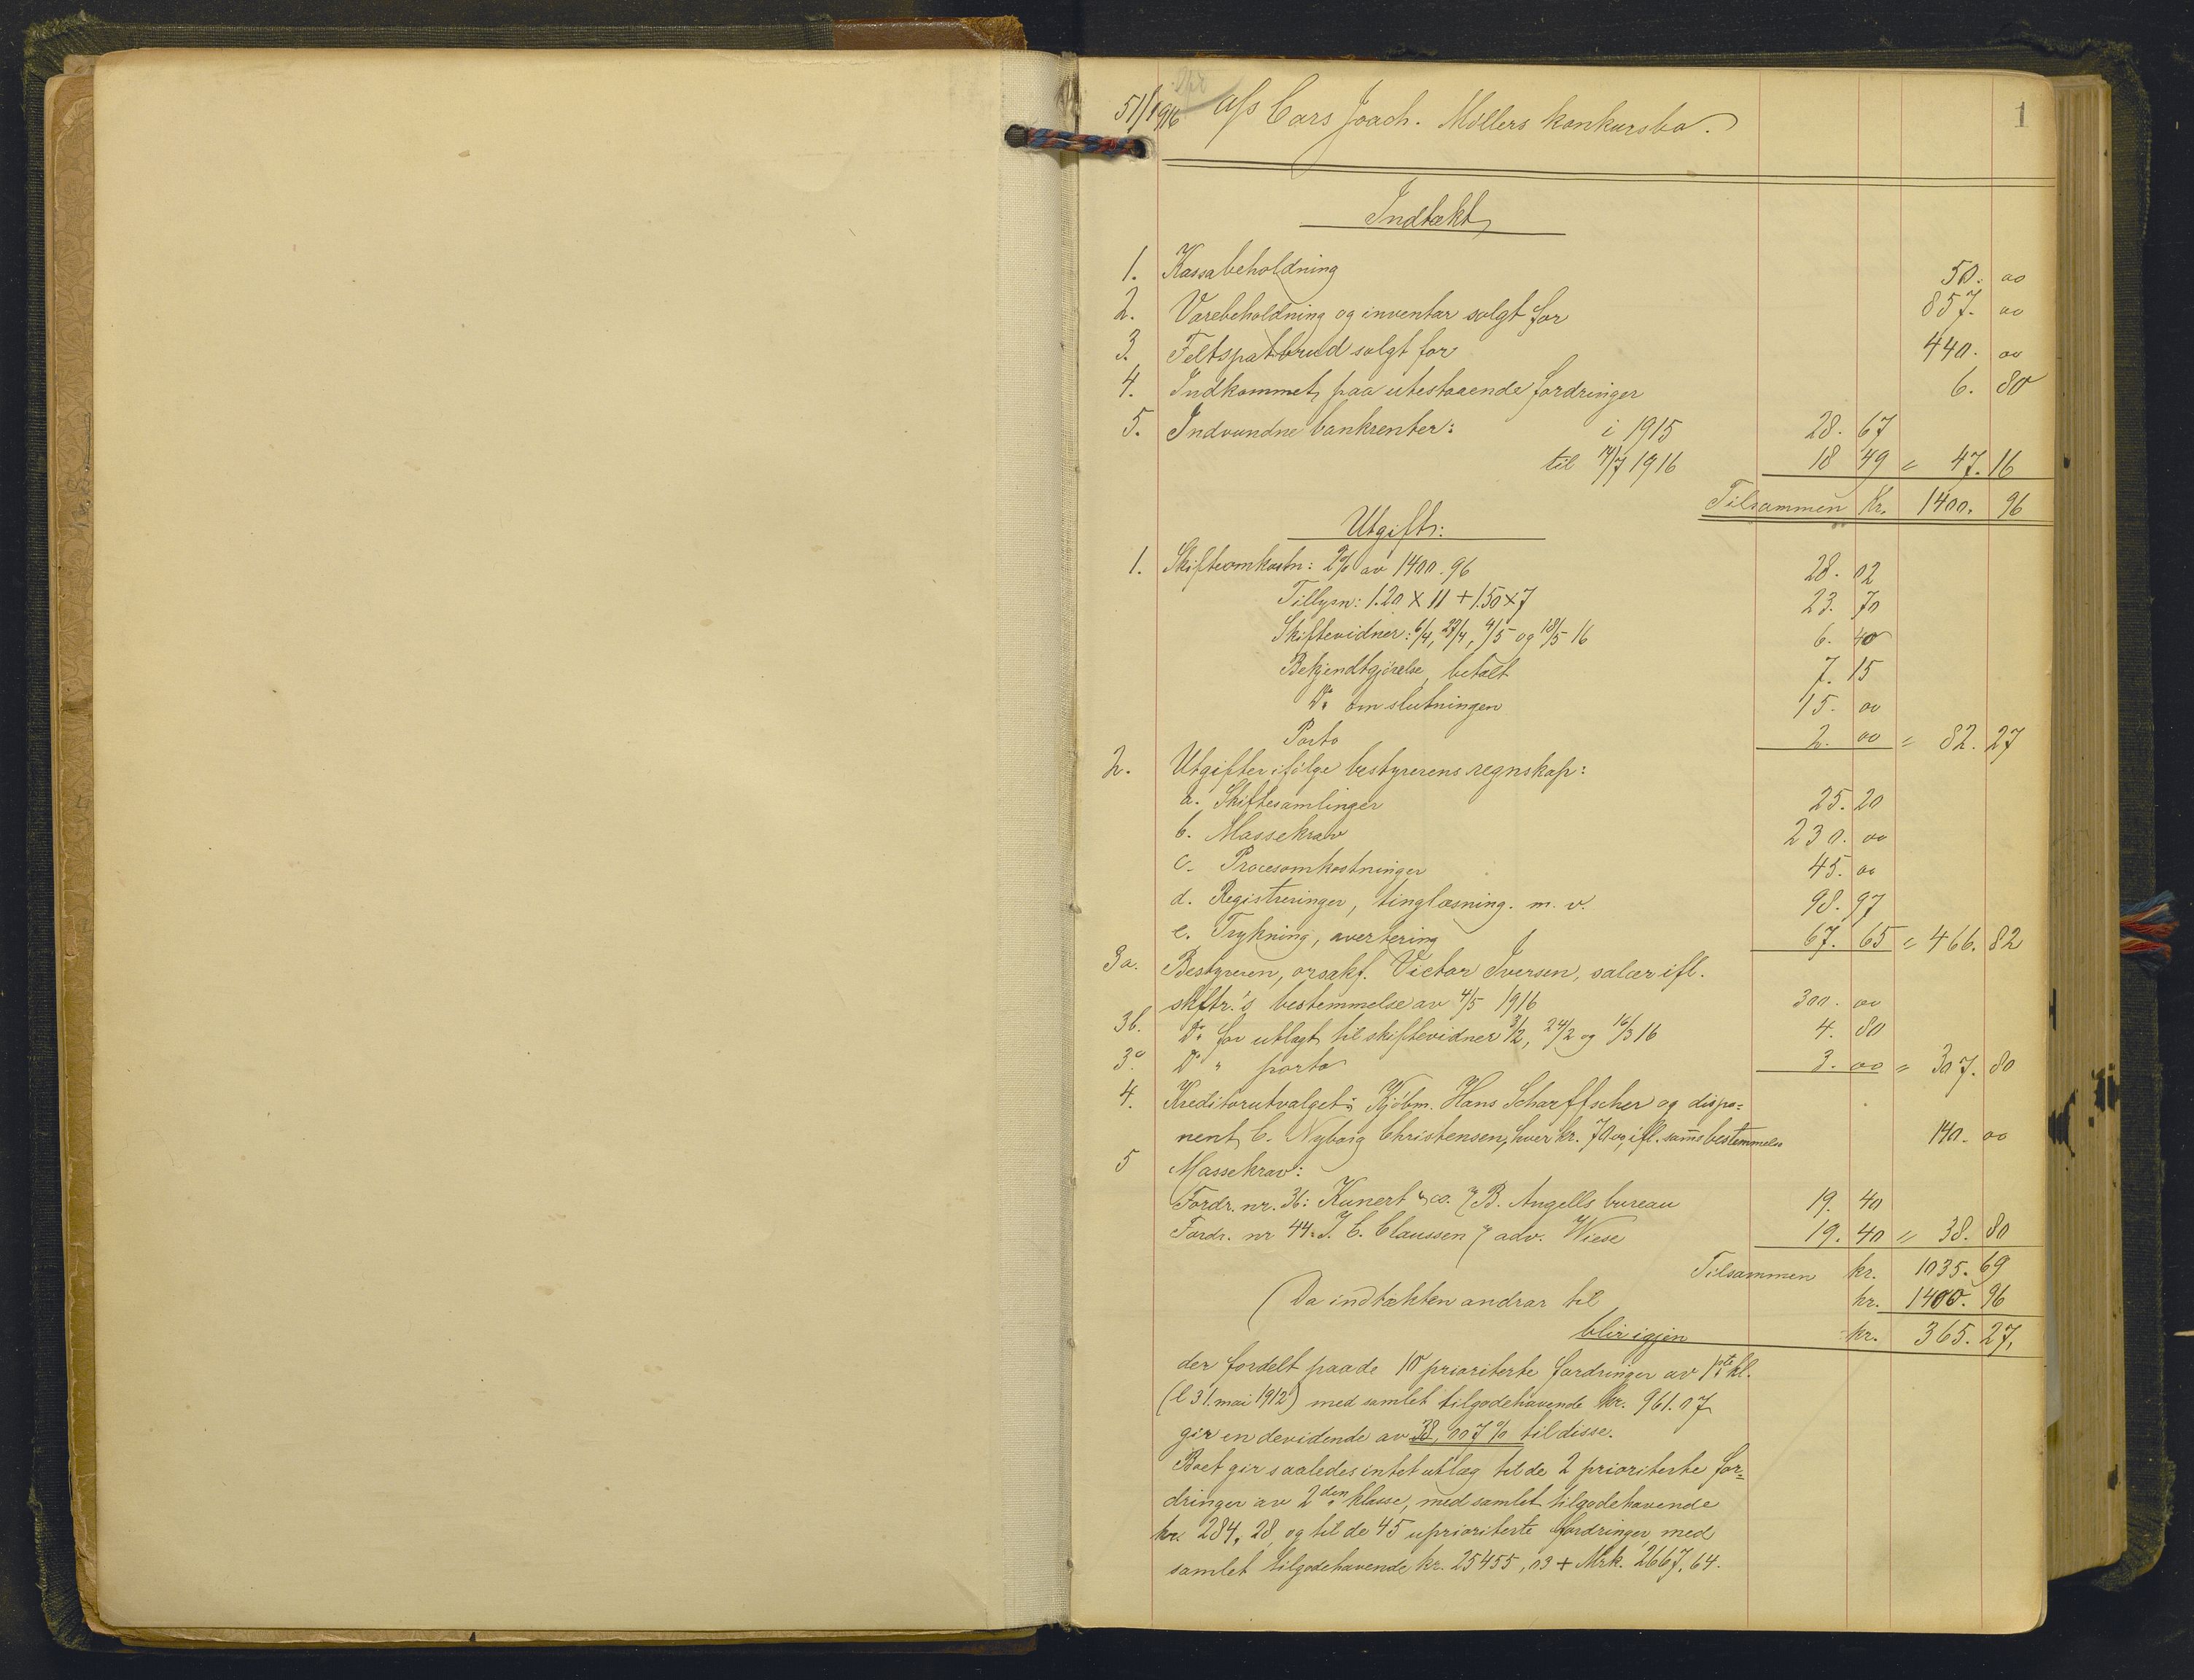 1
51/1916 A/s Cars Joach. Möllers konkursbo.
Indtækt
1. Kassabeholdning 50. 00
2. Varebeholdning og inventar solgt for 857. 00
3. Feltspatbrud solgt for 440. 00
4. Indkommet paa utestaaende fordringer 6. 80
5. Indvundne bankrenter: i 1915 28. 67
til 7/7 1916 18 49 = 47. 16
Tilsammen Kr. 1400. 96
Utgift:
1. Skifteomkostn: 2% av 1400.96 28. 02
Tillysn: 1.20 × 11 + 1.50 × 7 23. 70
Skiftevidner: 6/4, 27/4, 4/5 og 18/5 16 6. 40
Bekjendtgjörelse, betalt 7. 15
Do om slutningen 15. 00
Porto 2. 00 = 82. 27
2. Utgifter ifölge bestyrerens regnskap:
a. Skiftesamlinger 25. 20
b. Massekrav 230. 00
c. Procesomkostninger 45. 00
d. Registreringer, tinglæsning. m. v. 98. 97
e. Trykning, avertering 67. 65 = 466. 82
3a. Bestyreren, orsakf. Victor Iversen, salær ifl.
skftr.'s bestemmelse av 4/5 1916 300. 00
3b. Do for utlagt til skiftevidner 3/2, 24/2 og 16/3 16 4. 80
3c Do " porto 3. 00 = 307. 80
4. Kreditorutvalget: Kjöbm. Hans Scharffscher og dispo=
nent C. Nyborg Christensen, hver kr. 70.00, ifl. samme bestemmelse 140. 00
5 Massekrav:
Fordr. nr. 36: Kunert & co. B. Angells bureau 19. 40
Fordr. nr 44: J. C. Claussen adv. Wiese 19. 40 = 38. 80
Tilsammen kr. 1035. 69
Da indtækten andrar til kr. 1400. 96
blir igjen kr. 365. 27,
der fordelt paa de 10 prioriterte fordringer av 1ste kl.
(l 31. mai 1912) med samlet tilgodehavende kr. 961.07
gir en devidende av 38,007 % til disse.
Boet gir saaledes intet utlæg til de 2 prioriterte for=
dringer av 2den klasse, med samlet tilgodehavende
kr. 284,28 og til de 45 uprioriterte fordringer med
samlet tilgodehavende kr. 25455,03 + Mrk. 2667,64.